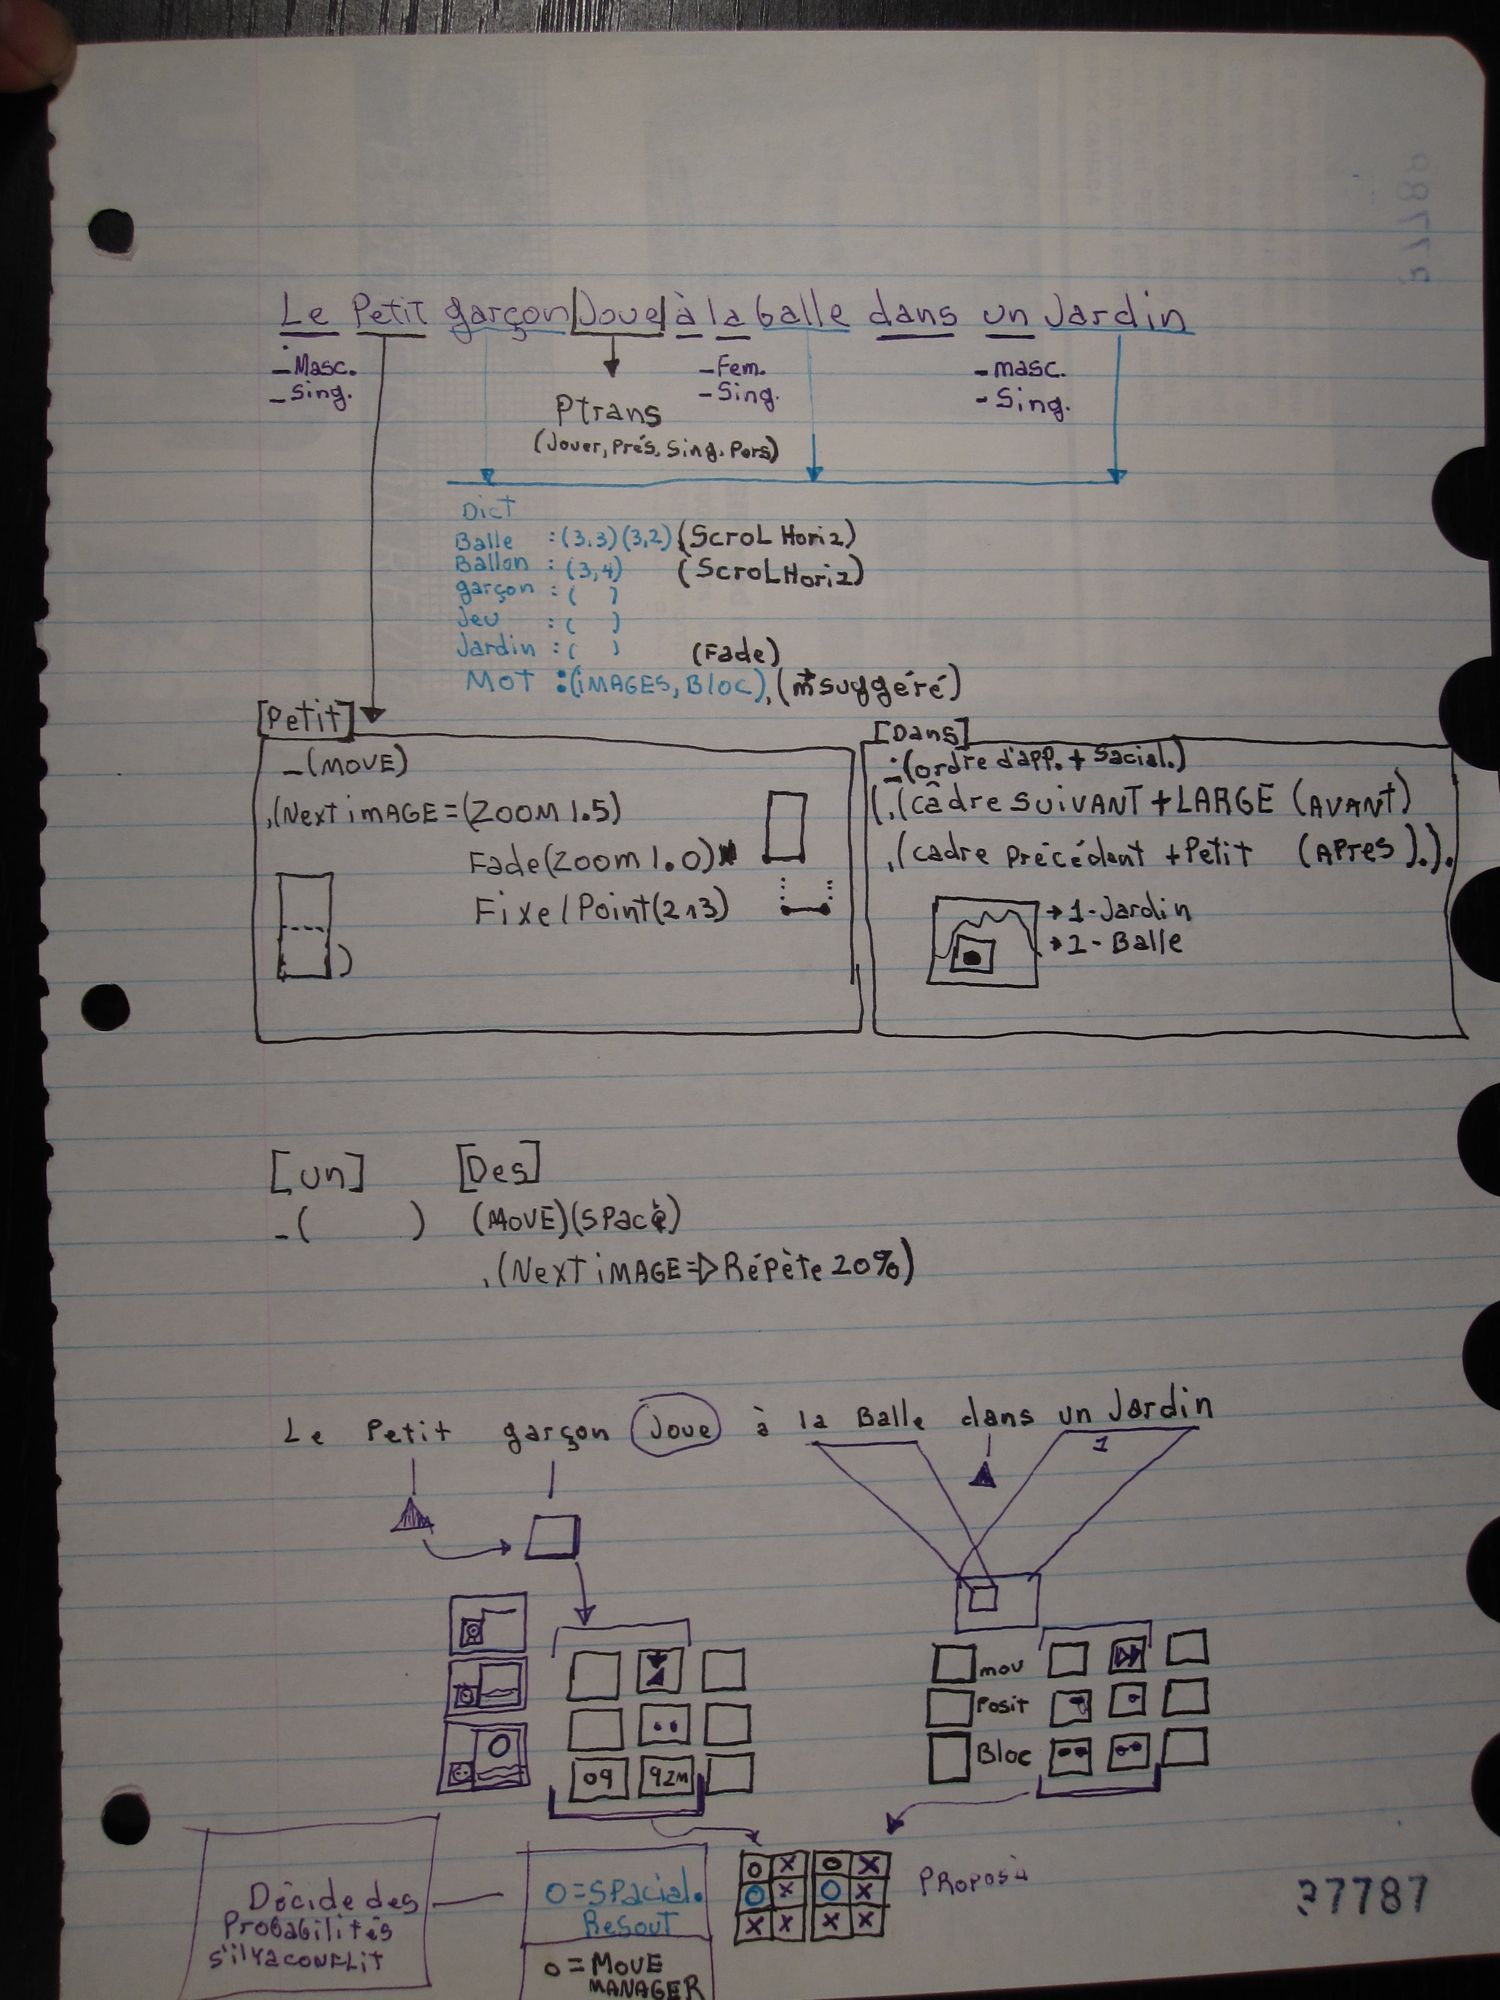 Le Petit garçon Joue à la balle dans un Jardin
-Masc. -Fem. -masc.
-Sing. -Sing. -Sing.
Ptrans
(Jouer, Prés. Sing. Pers)
Dict
Balle :(3.3)(3,2)(Scrol Horiz)
Ballon :(3,4) (ScrolHoriz)
garçon :( )
Jeu :( )
Jardin :( ) (Fade)
MOT :(iMAGES, Bloc),( suggéré)
[Petit]
-(MOVE)
,(Next iMAGE=(ZOOM 1.5)
Fade(Zoom 1.0)
Fixe/Point(2 3)
)
[Dans]
-(ordre d'app. + Sacial.)
(,(câdre SUIVANT + LARGE (AVANT)
,(cadre Précédent + Petit (APrès).).
1-Jardin
2-Balle
[un] [Des]
-( ) (MOVE)(SPace)
,(Next iMAGE=> Répète 20%)
Le Petit garçon Joue à la Balle dans un Jardin
1
mov
Posit
Bloc
09 92m
o x o x
o x o x
x x x x
PROPOSÀ
Décide des
Probabilités
s'il y a CONFLIT
O=SPacial.
Resout
o=Move
MANAGER
27787
27788